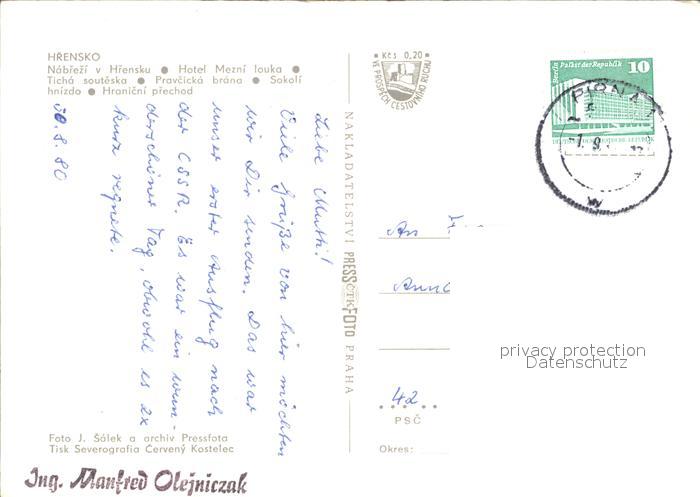 HŘENSKO
Nábřeží v Hřensku ● Hotel Mezní louka ●
Tichá soutěska ● Pravčická brána ● Sokolí
hnízdo ● Hraniční přechod
30.8.80
Liebe Mutti!
Viele Grüße von hier möchten
wir Dir senden. Das war
unser erster Ausflug nach
der CSSR. Es war ein wun-
derschöner Tag, obwohl es 2x
kurz regnete.
Foto J. Šálek a archiv Pressfota
Tisk Severografia Červený Kostelec
Ing. Manfred Olejniczak
NAKLADATELSTVÍ PRESSFOTO PRAHA
ČTK
Kčs 0,20
VE PROSPĚCH CESTOVNÍHO RUCHU
Berlin Palast der Republik 10
PIRNA 1
-1.9.
An
42
PSČ
Okres:
privacy protection
Datenschutz